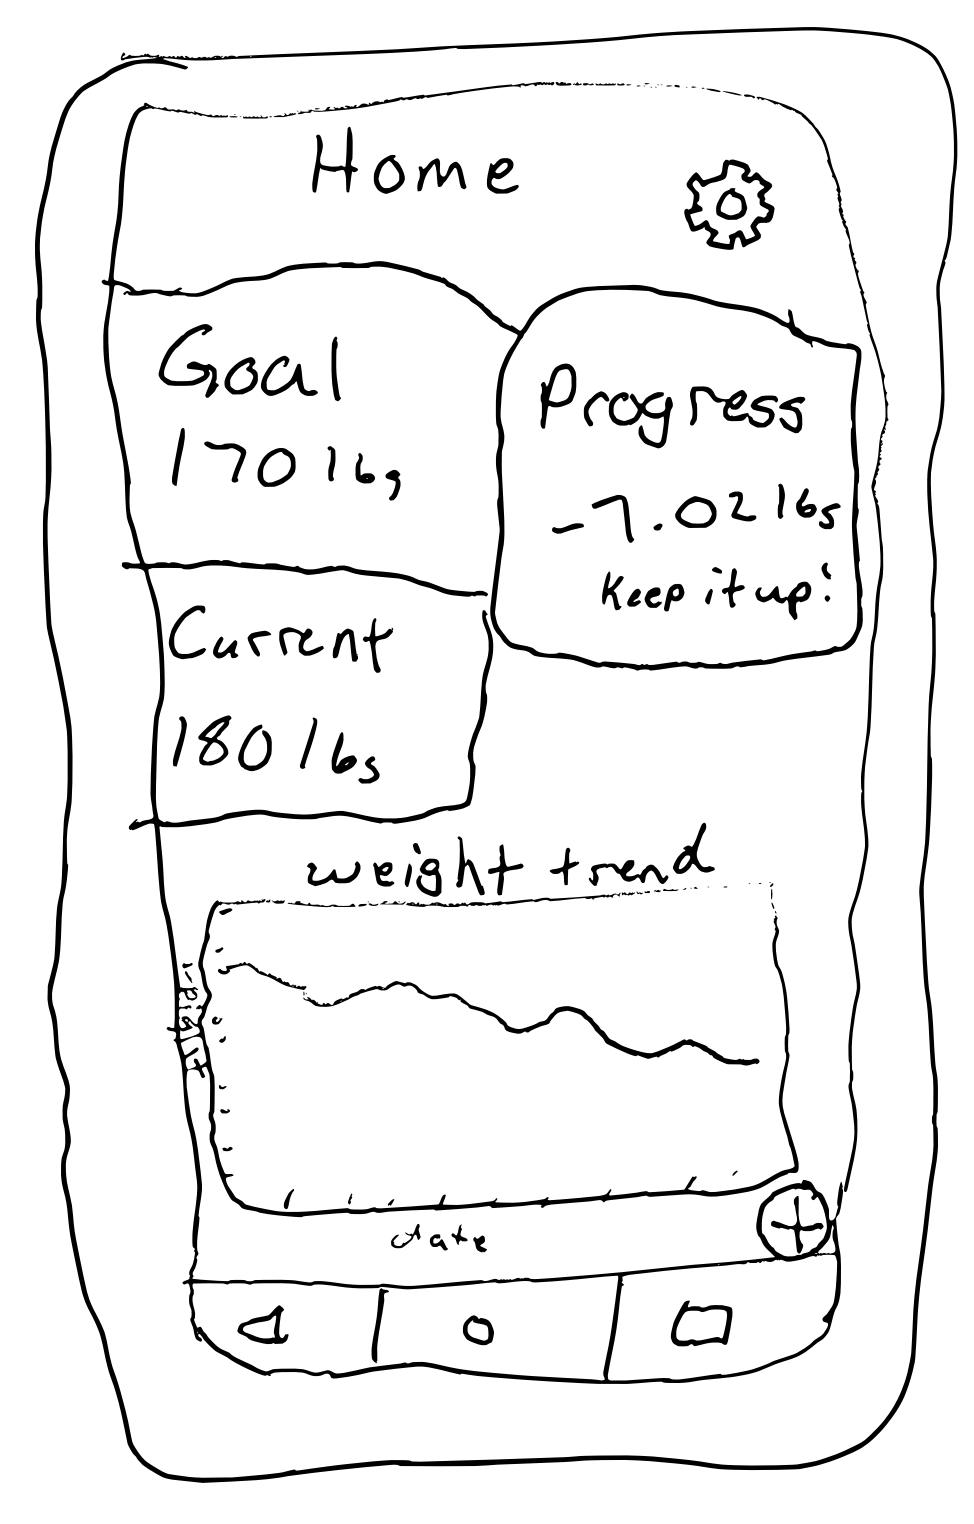 Home
Goal
170 lbs
Progress
-7.02 lbs
Keep it up!
Current
180 lbs
weight trend
weight
date